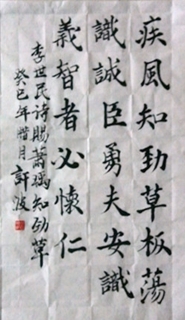 疾風知勁草板蕩
識誠臣勇夫安識
義智者必懷仁
李世民诗賜蕭瑀知劲草
癸巳年腊月郭波